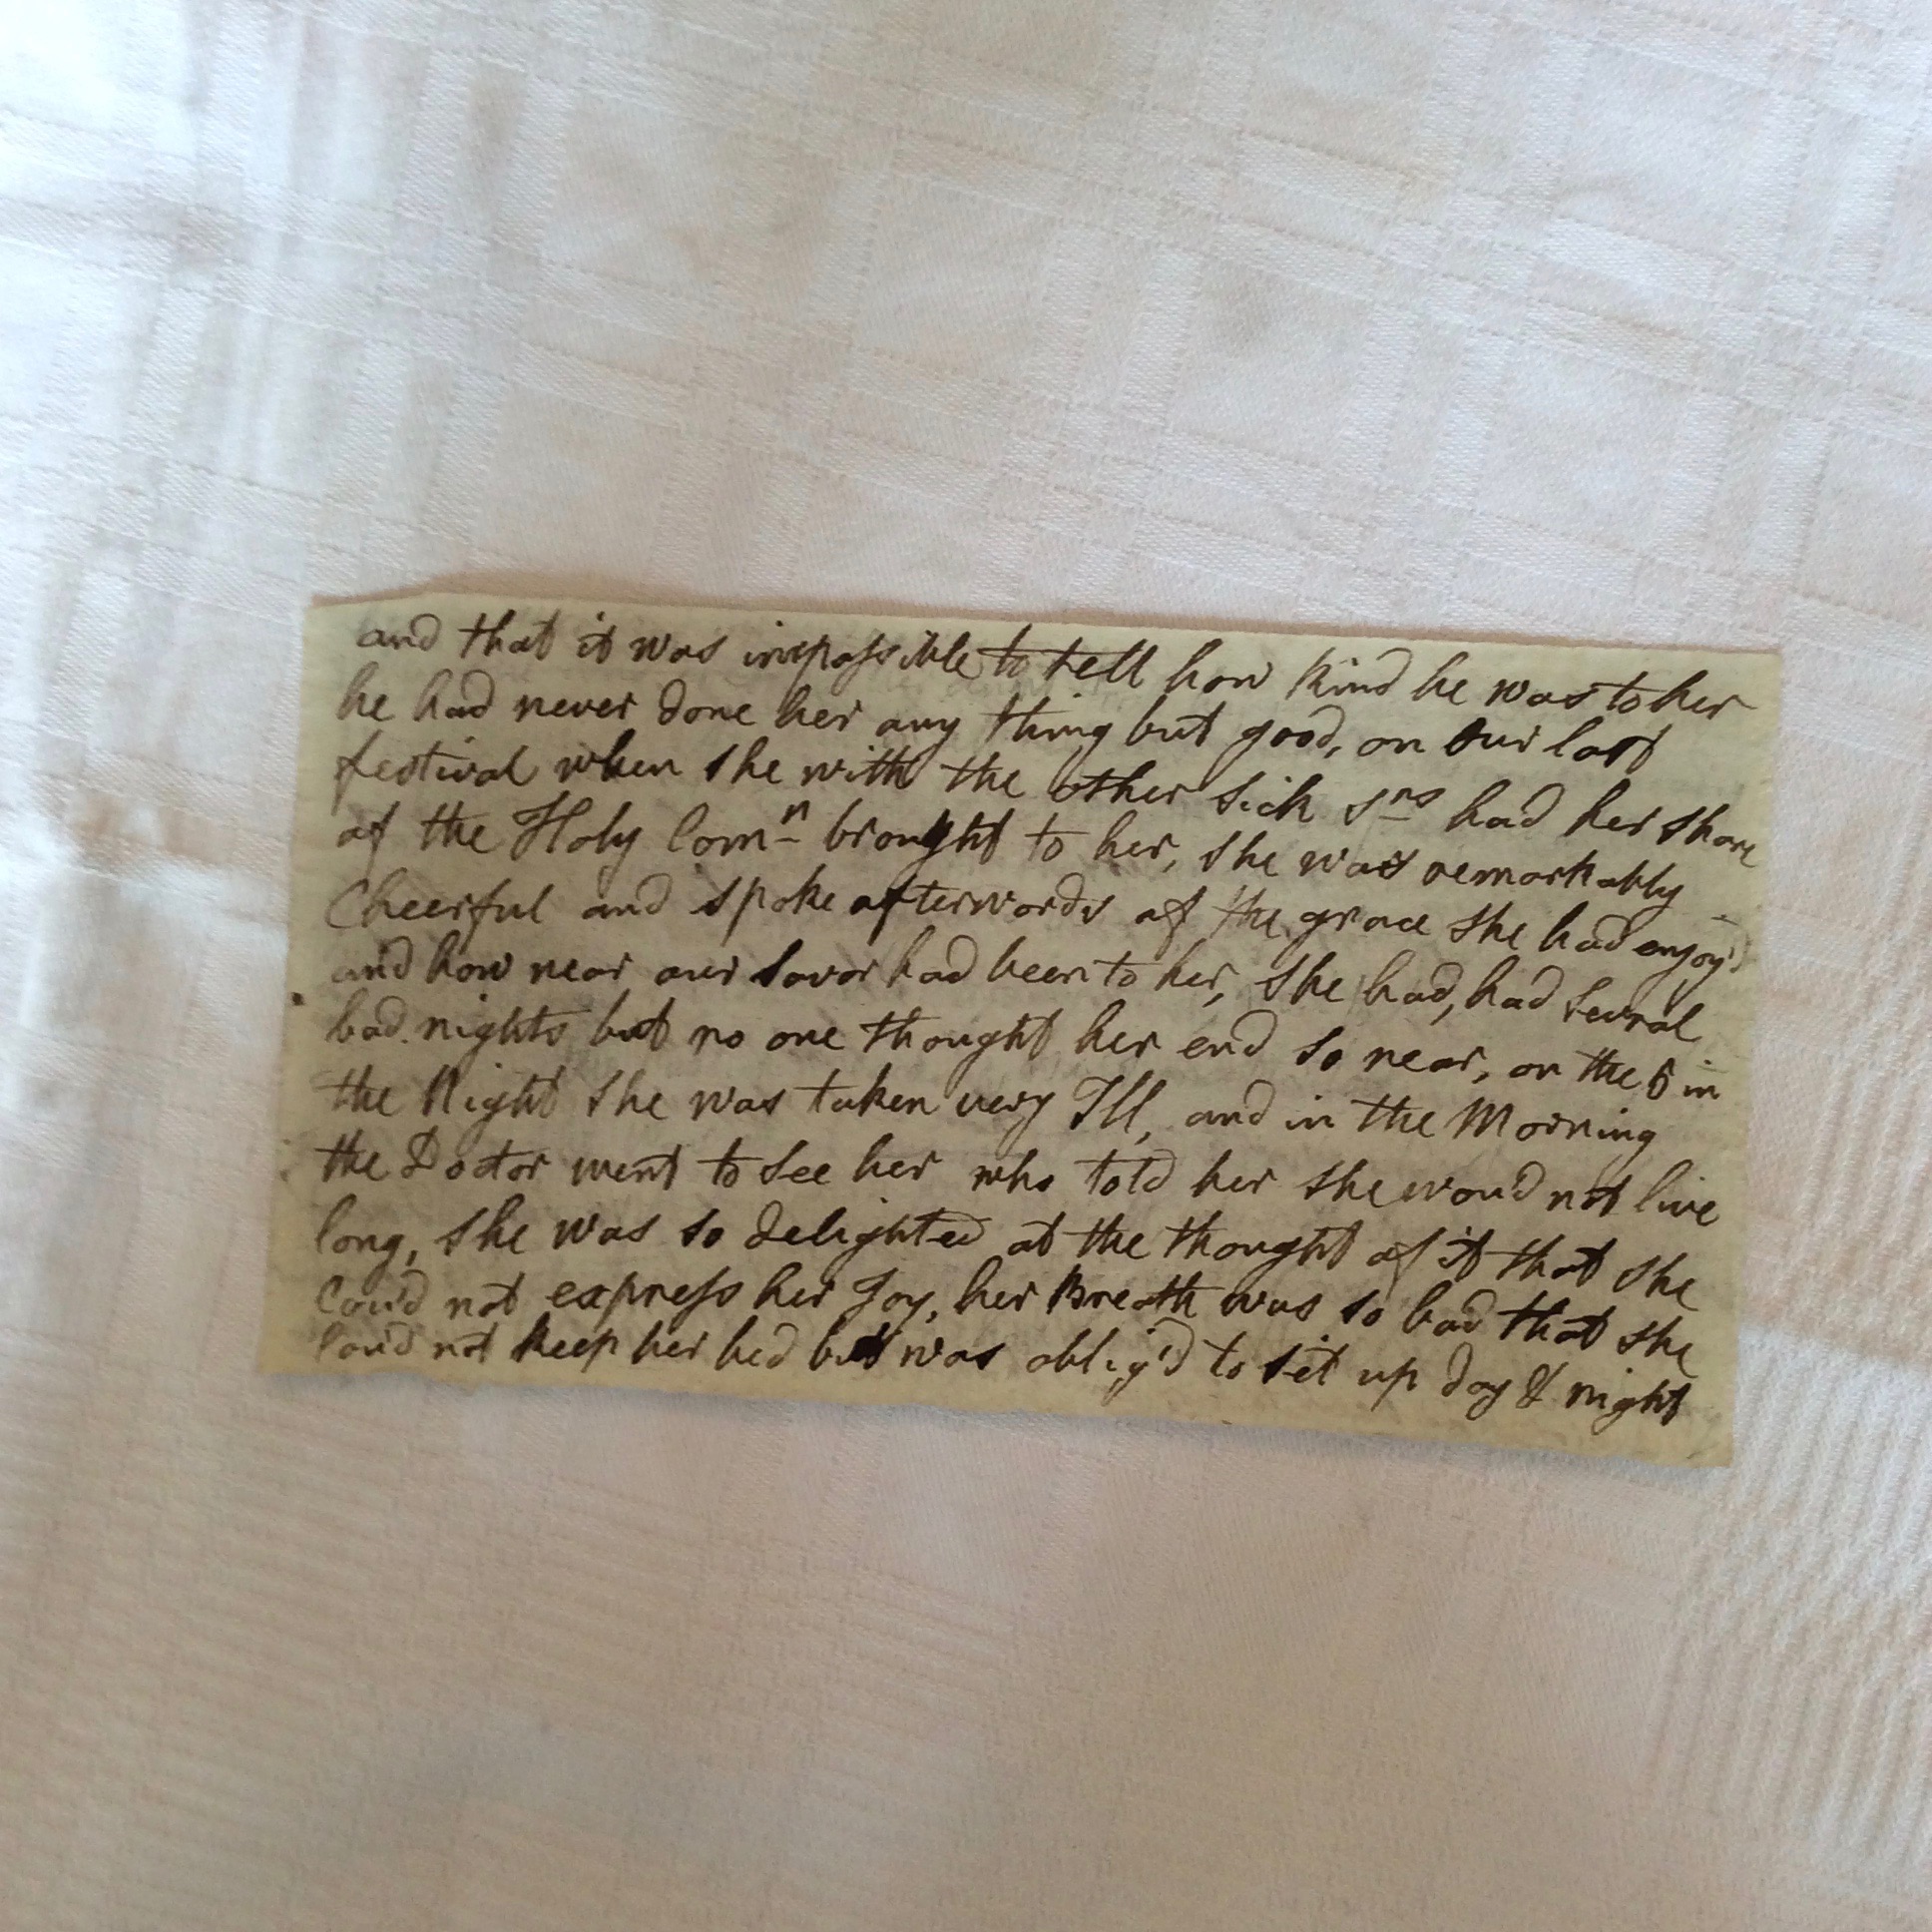 and that it was impossible to tell how kind he was to her
he had never done her any thing but good, on our last
festival when she with the other sick Srs had her share
of the Holy Comn brought to her, she was remarkably
Cheerful and spoke afterwords of the grace she had enjoy'd
and how near our Savor had been to her, she had, had sevral
bad nights but no one thought her end so near, on the 5 in
the Night she was taken very Ill, and in the Morning
the Doctor went to see her who told her she wou'd not live
long, she was so delighted at the thought of it that she
Cou'd not express her Joy, her Breath was so bad that she
Cou'd not keep her bed but was oblig'd to sit up day & night